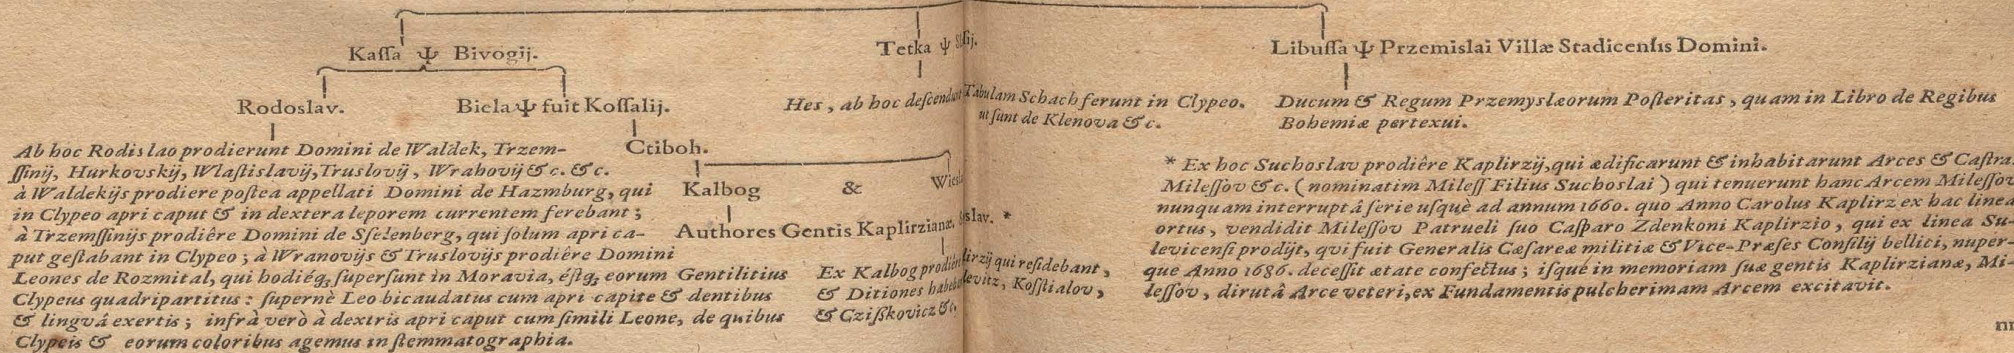 Kaſſa Ψ Bivogij.
Tetka Ψ
Libuſſa Ψ Przemislai Villæ Stadicenſis Domini.
Rodoslav.
Biela Ψ fuit Koſſalij.
Hes, ab hoc deſcendunt Tabulam Schach ferunt in Clypeo.
ut ſunt de Klenova & c.
Ducum & Regum Przemyslæorum Poſteritas, quam in Libro de Regibus
Bohemiæ pertexui.
Ab hoc Rodislao prodierunt Domini de Waldek, Trzem-
ſſinij, Hurkovskij, Wlaſtislavij, Truslovij, Wrahovij & c. & c.
à Waldekijs prodiere poſtea appellati Domini de Hazmburg, qui
in Clypeo apri caput & in dextera leporem currentem ferebant;
à Trzemſſinijs prodiêre Domini de Sſelenberg, qui ſolum apri ca-
put geſtabant in Clypeo; à Wranovijs & Truslovijs prodiêre Domini
Leones de Rozmital, qui hodiéqꝫ ſuperſunt in Moravia, éſtqꝫ eorum Gentilitius
Clypeus quadripartitus: ſupernè Leo bicaudatus cum apri capite & dentibus
& linguâ exertis; infrà verò à dextris apri caput cum ſimili Leone, de quibus
Clypeis & eorum coloribus agemus in ſtemmatographia.
Ctiboh.
Kalbog & 
Authores Gentis Kaplirzianæ. slav. *
Ex Kalbog prodiêre lirzij qui reſidebant,
& Ditiones levitz, Koſſtialov,
& Cziſkovicz & c.
* Ex hoc Suchoslav prodiêre Kaplirzij, qui ædificarunt & inhabitarunt Arces & Caſtra
Mileſſov & c. (nominatim Mileſſ Filius Suchoslai) qui tenuerunt hanc Arcem Mileſſov
nunquam interruptâ ſerie uſquè ad annum 1660. quo Anno Carolus Kaplirz ex hac linea
ortus, vendidit Mileſſov Patrueli ſuo Caſparo Zdenkoni Kaplirzio, qui ex linea Su-
levicenſi prodijt, qvi fuit Generalis Cæſareæ militiæ & Vice-Præſes Conſilij bellici, nuper-
que Anno 1686. deceſſit ætate confectus; iſqué in memoriam ſuæ gentis Kaplirzianæ, Mi-
leſſov, dirutâ Arce veteri, ex Fundamentis pulcherimam Arcem excitavit.